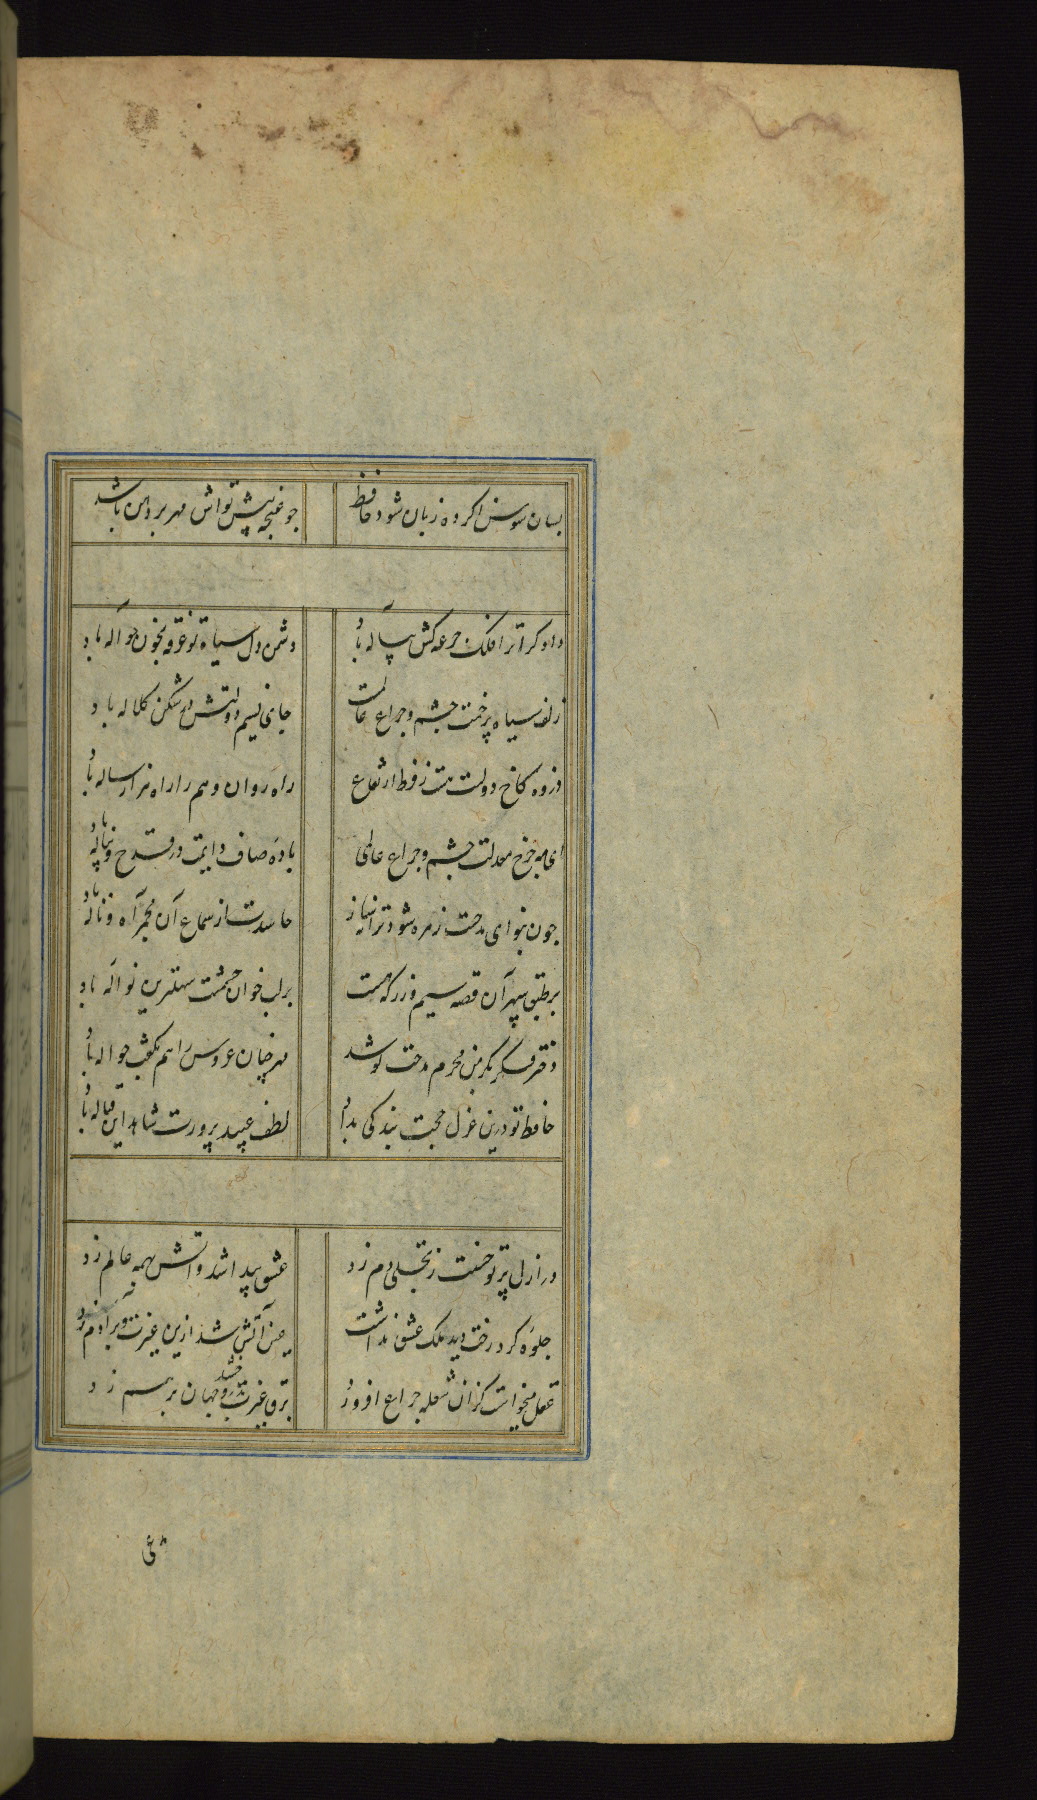 بسان سوسن اکر ده زبان شود حافظ جو غنچه پیش تواش مهر بر دهن باشد
داد کرا ترا فلک جرعه کش پیاله باد دشمن دل سیاه تو غرقه بخون جو آله باد
زلف سیاه پرخمت جشم و جراغ عالمست جای نسیم دولتش در شکن کلاله باد
ذروه کاخ دولتت هست ز فرط ارتفاع راه روان وهم را راه هزار ساله باد
ای مه جرخ معدلت جشم و جراغ عالمی باده صاف دایمت در قدح و پیاله باد
جون بنوای مدحتت زهره شود ترانه ساز حاسدت از سماع آن محرم آه و ناله باد
بر طبق سپهر آن قصه سیم و زر که هست بر لب خوان حشمتت سهلترین نواله باد
دختر فکر بکر من محرم مدحت تو شد مهر جنان عروس را هم بکفت حواله باد
حافظ تو درین غزل حجت بندکی بداد لطف عبید پرورت شاهد این قباله باد
در ازل پرتو حسنت ز تجلی دم زد عشق پیدا شد و آتش بهمه عالم زد
جلوه کرد رخت دید ملک عشق نداشت عین آتش شد ازین غیرت و بر آدم زد
عقل میخواست کزان شعله جراغ افروزد برق غیرت بدرخشید و جهان برهم زد